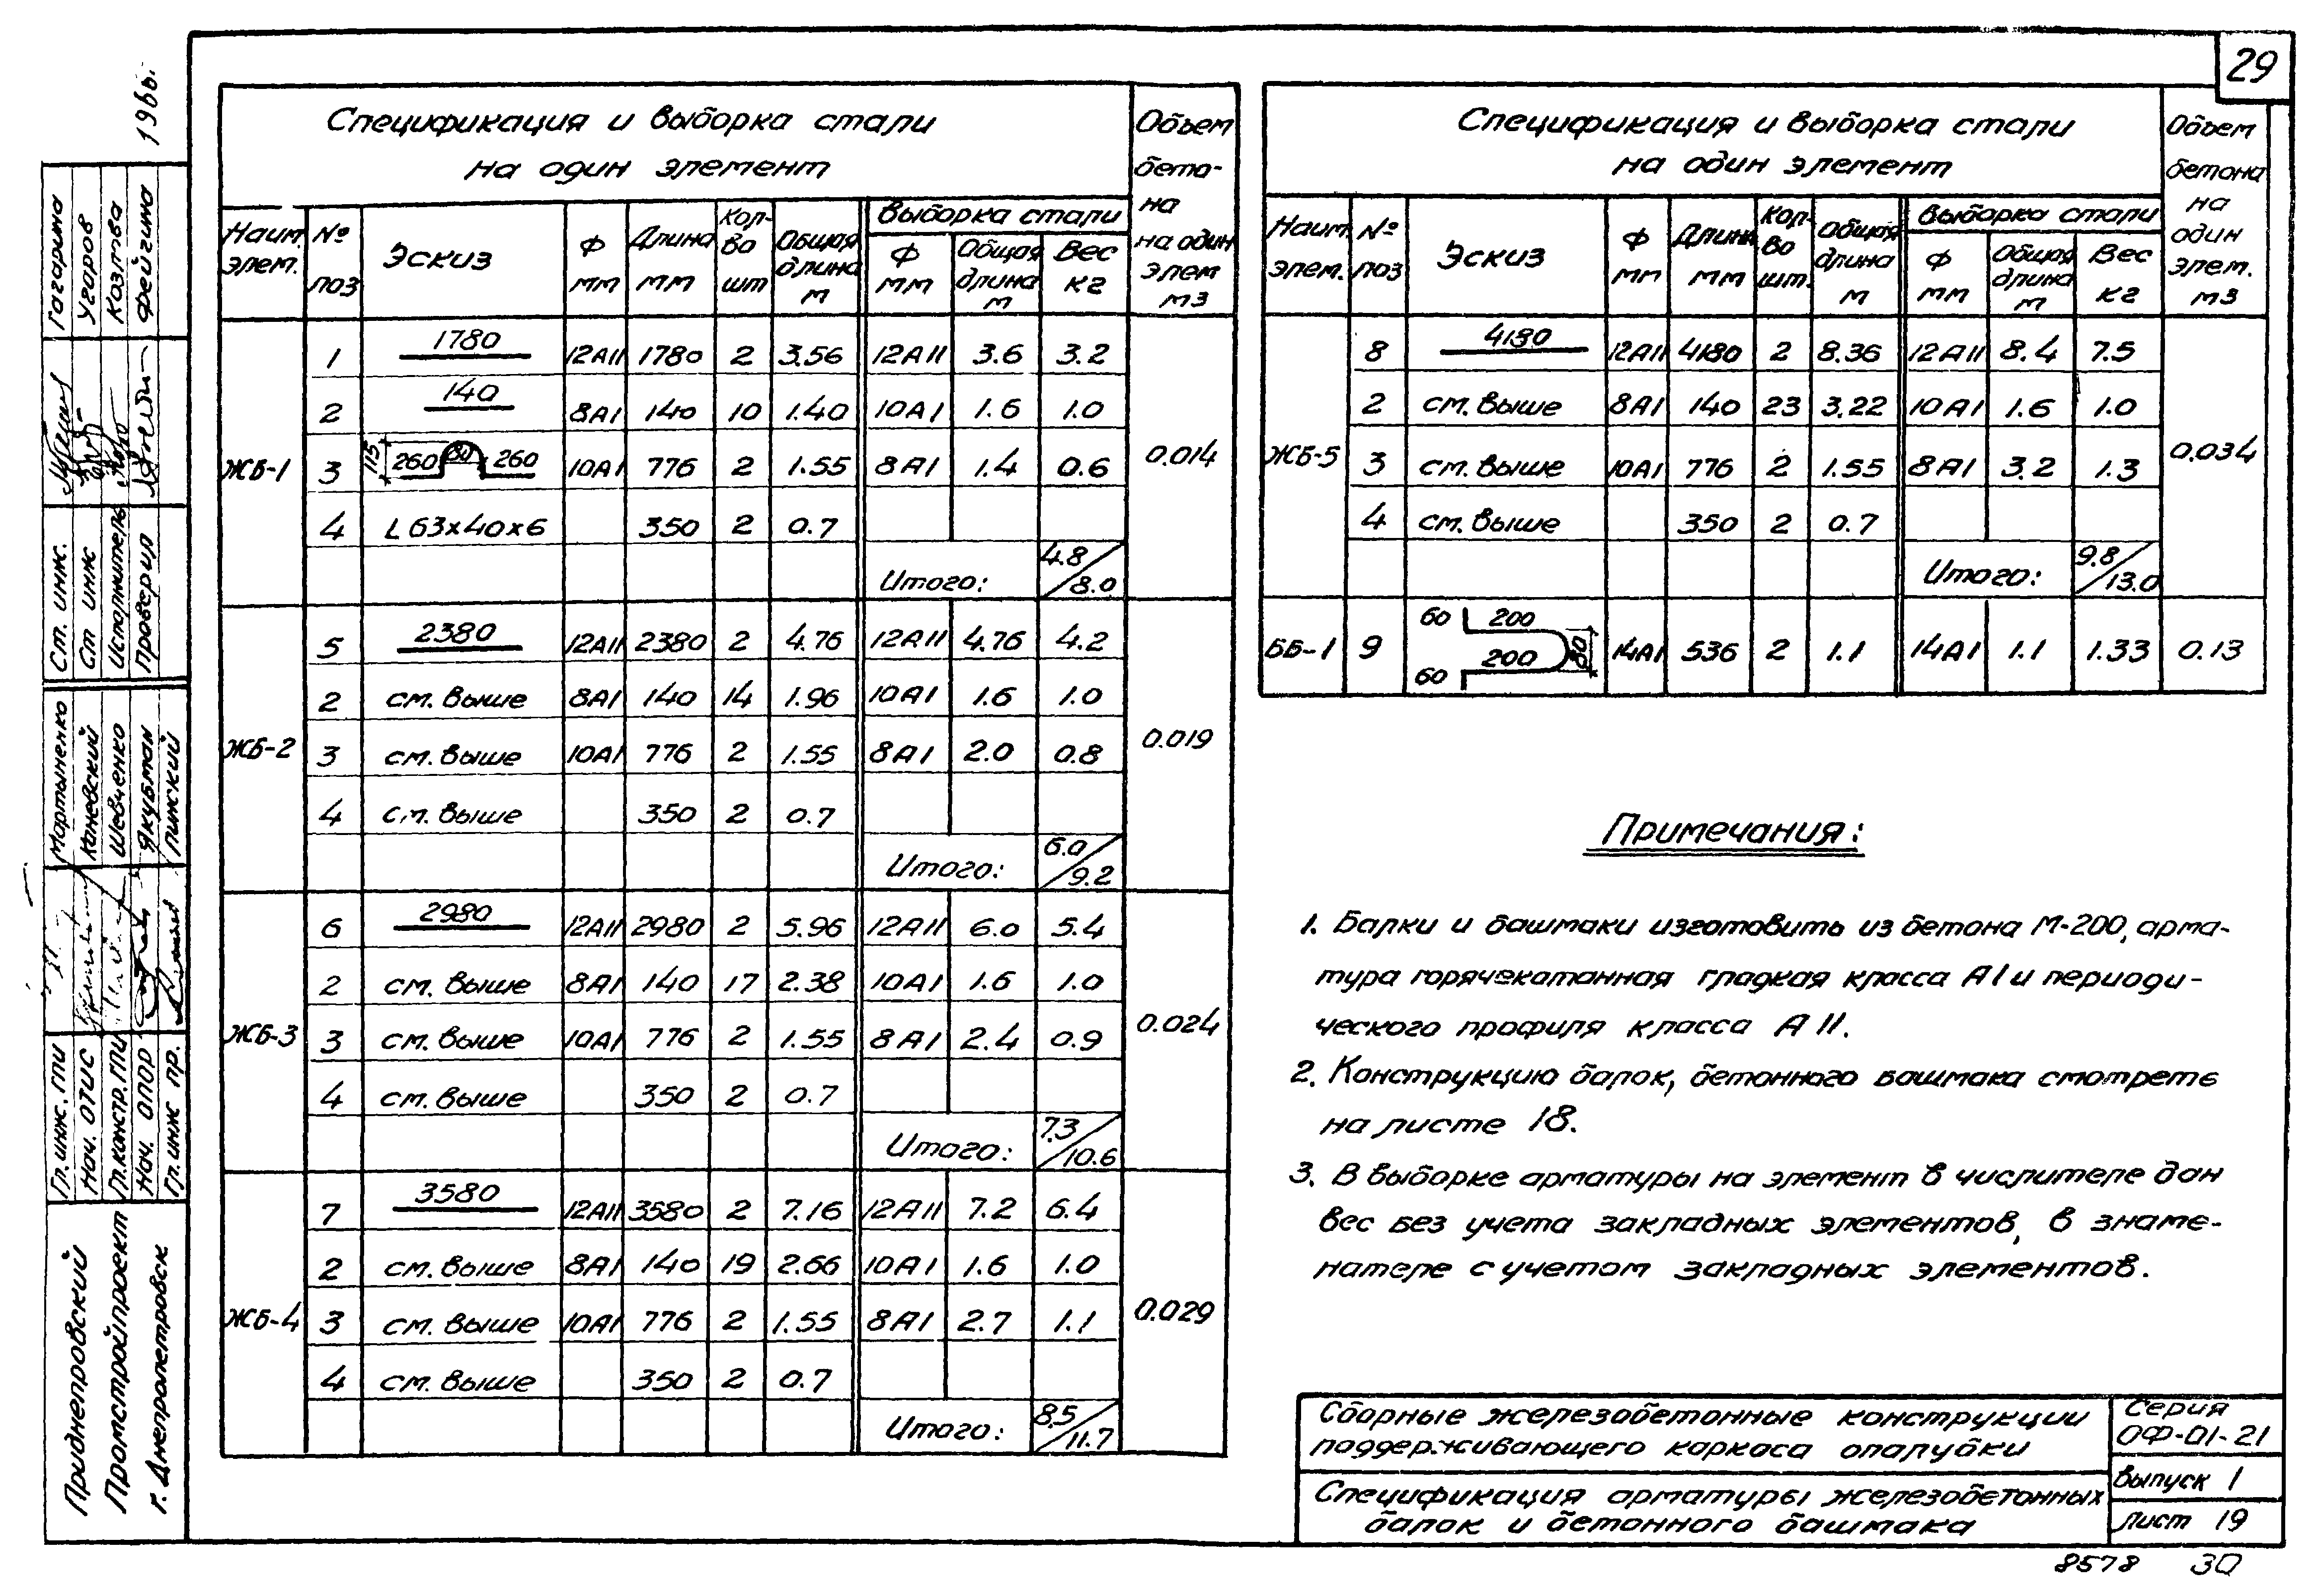 29
Спецификация и выборка стали
на один элемент
Объем бето- на на один элем м3
Наим. элем. № поз Эскиз Ф мм Длина мм Кол- во шт Общая длина м Выборка стали
Ф мм Общая длина м Вес кг
ЖБ-1 0.014
1 1780 12АII 1780 2 3.56 12АII 3.6 3.2
2 140 8АI 140 10 1.40 10АI 1.6 1.0
3 115 260 80 260 10АI 776 2 1.55 8АI 1.4 0.6
4 L63x40x6 350 2 0.7
Итого: 4.8/8.0
ЖБ-2 0.019
5 2380 12АII 2380 2 4.76 12АII 4.76 4.2
2 см. выше 8АI 140 14 1.96 10АI 1.6 1.0
3 см. выше 10АI 776 2 1.55 8АI 2.0 0.8
4 см. выше 350 2 0.7
Итого: 6.0/9.2
ЖБ-3 0.024
6 2980 12АII 2980 2 5.96 12АII 6.0 5.4
2 см. выше 8АI 140 17 2.38 10АI 1.6 1.0
3 см. выше 10АI 776 2 1.55 8АI 2.4 0.9
4 см. выше 350 2 0.7
Итого: 7.3/10.6
ЖБ-4 0.029
7 3580 12АII 3580 2 7.16 12АII 7.2 6.4
2 см. выше 8АI 140 19 2.66 10АI 1.6 1.0
3 см. выше 10АI 776 2 1.55 8АI 2.7 1.1
4 см. выше 350 2 0.7
Итого: 8,5/11.7
Спецификация и выборка стали
на один элемент
Объем бетона на один элем. м3
Наим. элем. № поз Эскиз Ф мм Длина мм Кол- во шт. Общая длина м Выборка стали
Ф мм Общая длина м Вес кг
ЖБ-5 0.034
8 4180 12АII 4180 2 8.36 12АII 8.4 7.5
2 см. выше 8АI 140 23 3.22 10АI 1.6 1.0
3 см. выше 10АI 776 2 1.55 8АI 3.2 1.3
4 см. выше 350 2 0.7
Итого: 9.8/13.0
ББ-1 9 60 200 200 60 80 14АI 536 2 1.1 14АI 1.1 1.33 0.13
Примечания:
1. Балки и башмаки изготовить из бетона М-200, арма-
тура горячекатанная гладкая класса АI и периоди-
ческого профиля класса А II.
2. Конструкцию балок, бетонного башмака смотреть
на листе 18.
3. В выборке арматуры на элемент в числителе дан
вес без учета закладных элементов, в знаме-
нателе с учетом закладных элементов.
Сборные железобетонные конструкции
поддерживающего каркаса опалубки
Серия
ОФ-01-21
Спецификация арматуры железобетонных
балок и бетонного башмака
Выпуск 1
Лист 19
8578 30
Приднепровский
Промстройпроект
г. Днепропетровск
Гл. инж. ГПИ Мартыненко
Нач. ОТИС Каневский
Гл. констр. ГПИ Шевченко
Нач. ОПОР Якубман
Гл. инж пр. Лижский
Ст. инж. Гагарина
Ст инж Угоров
Исполнитель Козлова
Проверил Фейгина
196